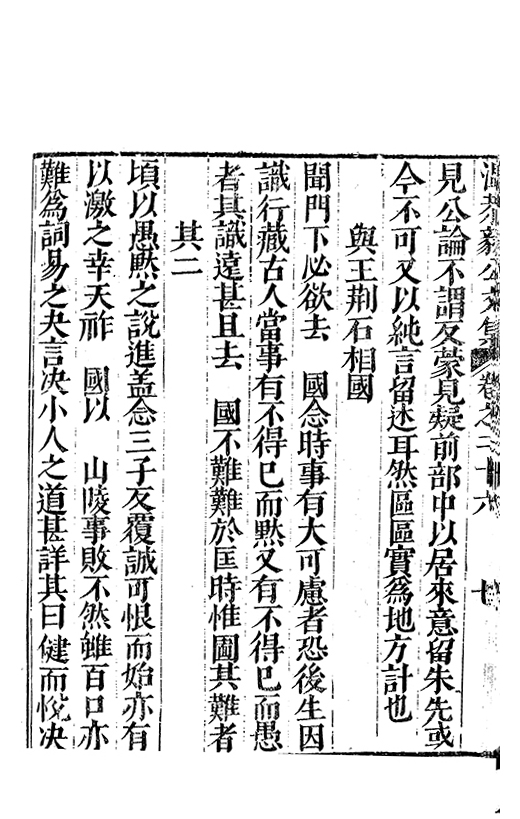 溫恭毅公文集 卷之二十六 七
見公論不謂反蒙見疑前部中以居來意留朱先或
今不可又以純言留述耳然區區實為地方計也
與王荆石相國
聞門下必欲去 國念時事有大可慮者恐後生因
識行藏古人當事有不得已而黙又有不得已而愚
者其識遠甚且去 國不難難於匡時惟圖其難者
其二
頃以愚黙之說進盖念三子反覆誠可恨而始亦有
以激之幸天祚 國以 山陵事敗不然雖百口亦
難為詞易之夬言決小人之道甚詳其曰健而悅決